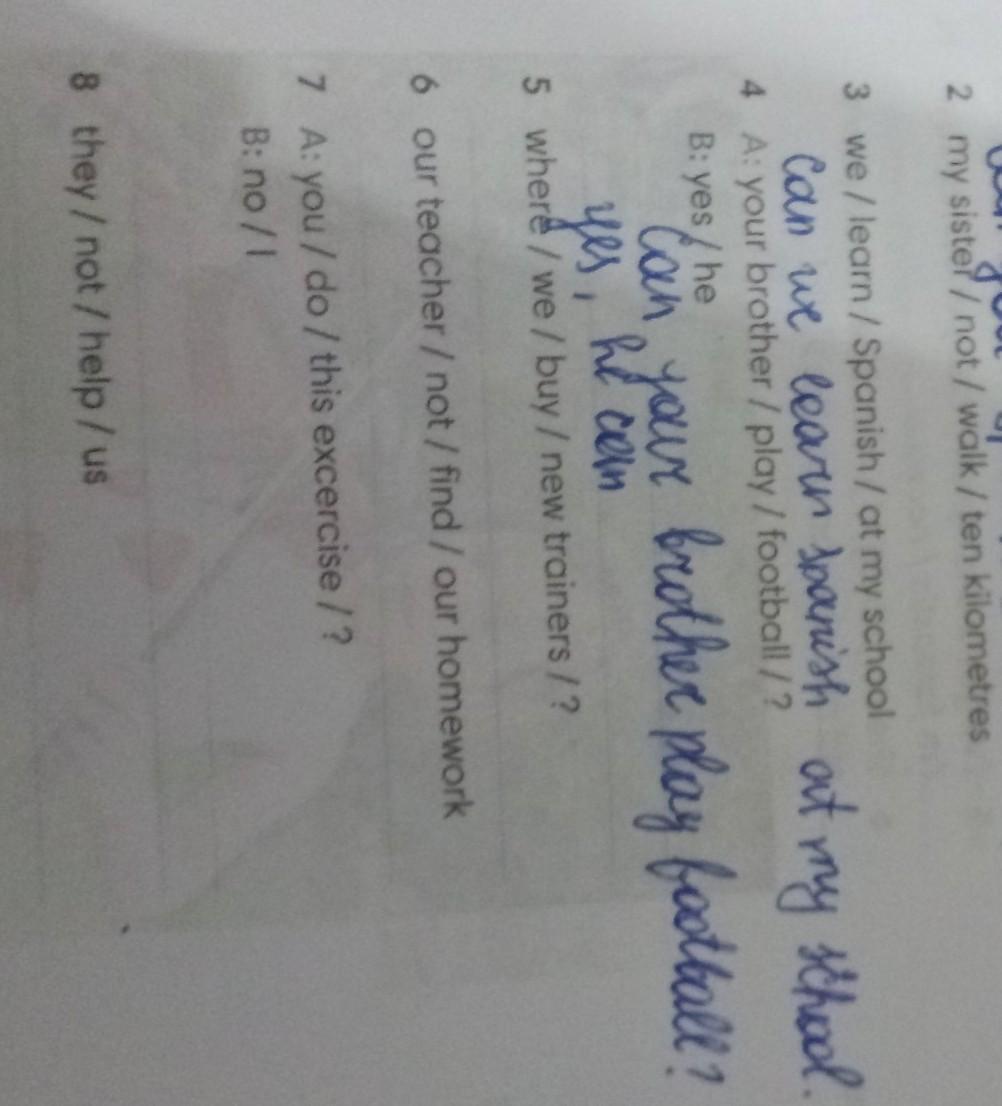 2 my sister / not / walk / ten kilometres
3 we / learn / Spanish / at my school
Can we learn spanish at my school.
4 A: your brother / play / football / ?
B: yes / he
Can your brother play football?
yes, he can
5 where / we / buy / new trainers / ?
6 our teacher / not / find / our homework
7 A: you / do / this excercise / ?
B: no / I
8 they / not / help / us